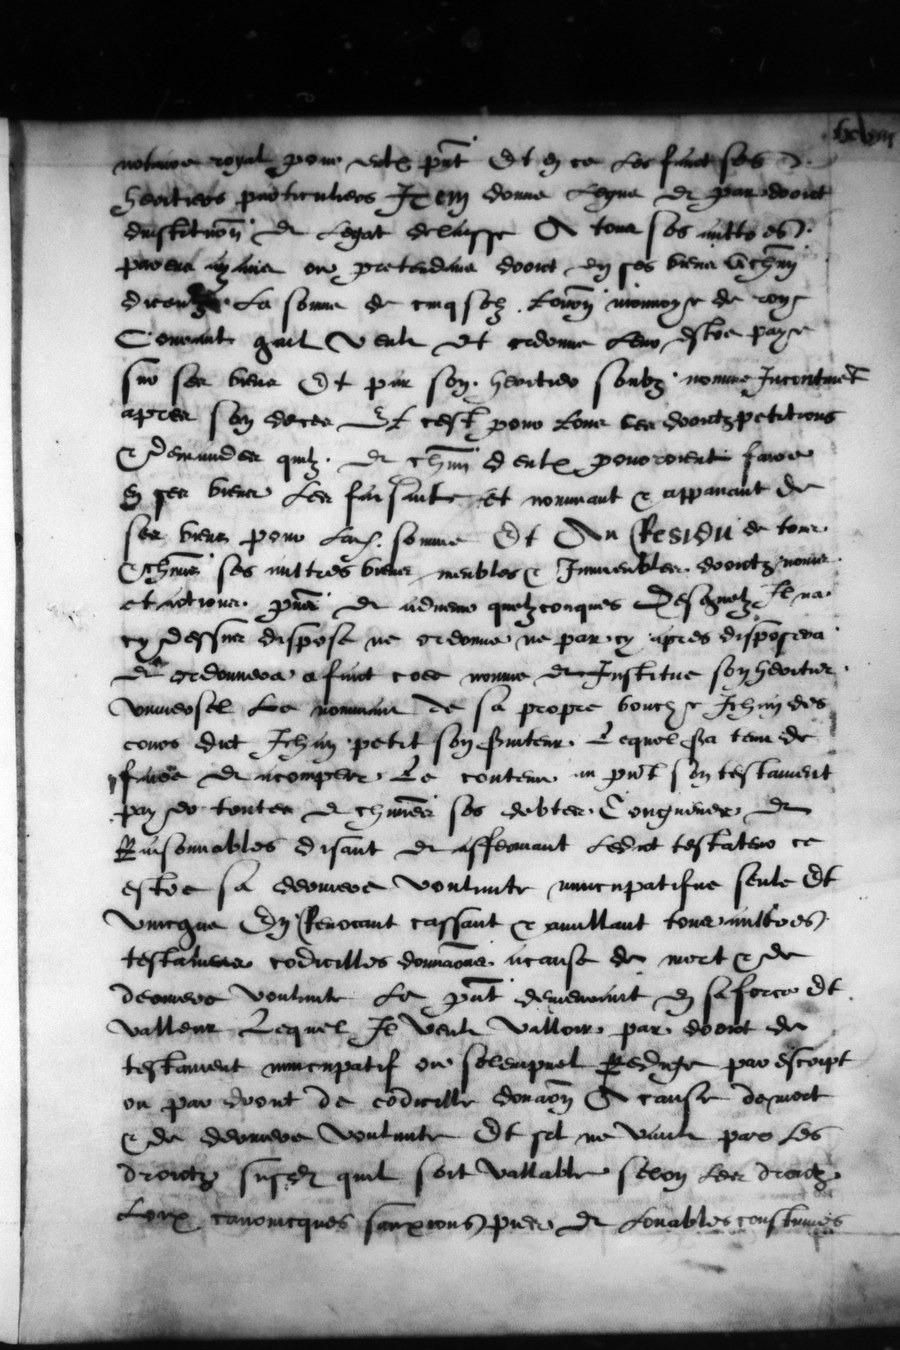 notaire royal pour eulx pnt Et en ce les faict ses
heritiers particuliers Item donne legue et par droict
dinstitution et legat delaisse A tous ses aultres
parens amys ou pretendans droict en ses biens &
la somme de cinq solz monnoye de roy
Courant quil veult et ordonne leur estre paye
sur ses biens Et par son heritier soubz nomme Incontinent
apres son deces Et cest pour tous les droictz petitions
& demandes quilz et chun deulx pourroient faire
en ses biens les faisant et nommant &
ses biens pour lad. somme Et Au Residu de tous
& chuns ses aultres biens meubles & Immeubles droictz noms
et actions pns et advenir quelzconques Desquelz Il na
cy dessus dispose ne ordonne ne par cy apres disposera
et ordonnera a faict cree nomme et Institue son heritier
universel le nommant de sa propre bouche Jehan
dict Jehan petit son Lequel sera tenu de
faire et acomplir Le contenu au pnt son testament
payer toutes et chunes ses debtes Congneues et
Raisonnables disant et affermant ledict testateur ce
estre sa derniere voulunte nuncupatifve seule Et
unicque En Revocant cassant & anullant tous aultres
testamens codicilles donnaons a cause de mort & de
derniere voulunte le pnt demeurant en sa force Et
valleur Lequel Il veult valloir par droict de
testament nuncupatif ou solempnel Redige par escript
ou par droict de codicille donaon A cause de mort
& de derniere voulunte Et sil ne vault par les
droictz susd. quil soit vallable selon les droictz
Loix canonicques sanxions et louables coustumes